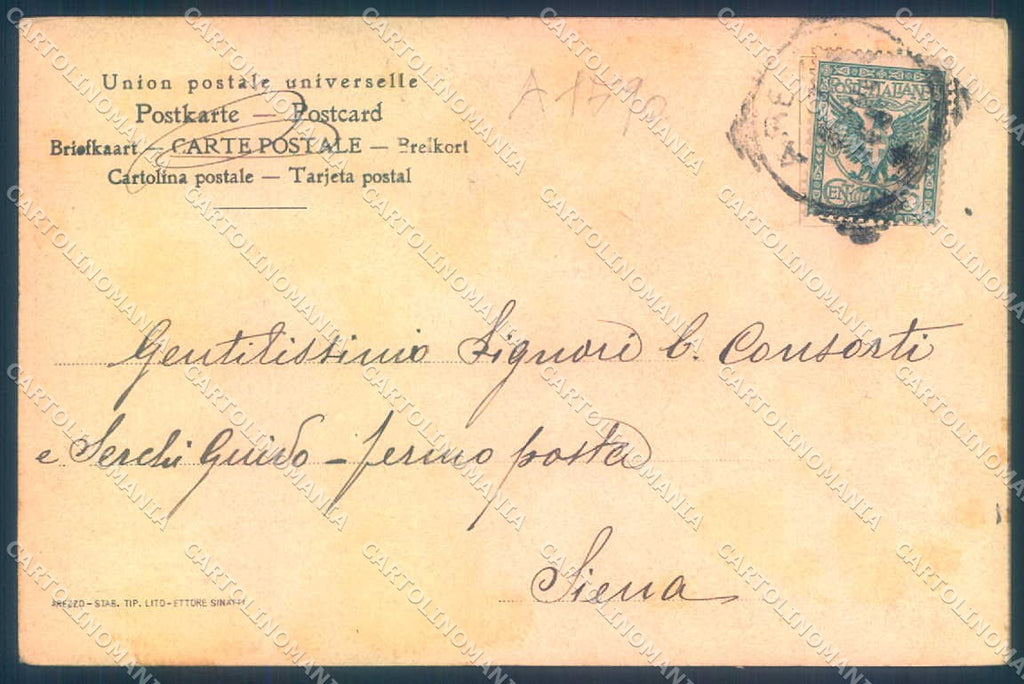 Union postale universelle
Postkarte — Postcard
Briefkaart — CARTE POSTALE — Brelkort
Cartolina postale — Tarjeta postal
A 179
POSTE ITALIANE
ARE
Gentilissimo Signori C. Consorti
e Serchi Guido – fermo posta
Siena
AREZZO – STAB. TIP. LITO – ETTORE SINATTI
CARTOLINOMANIA